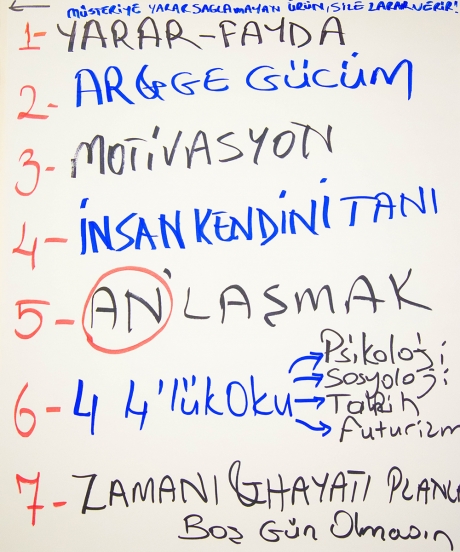 MÜŞTERİYE YARAR SAĞLAMAYAN ÜRÜN, SİZE ZARAR VERİR!
1- YARAR-FAYDA
2- AR&GE GÜCÜM
3- MOTİVASYON
4- İNSAN KENDİNİ TANI
5- AN'LAŞMAK
6- 4 4'lük Oku
Psikoloji
Sosyoloji
Tarih
Futurizm
7- ZAMANI & HAYATI PLANL
Boş Gün Olmasın